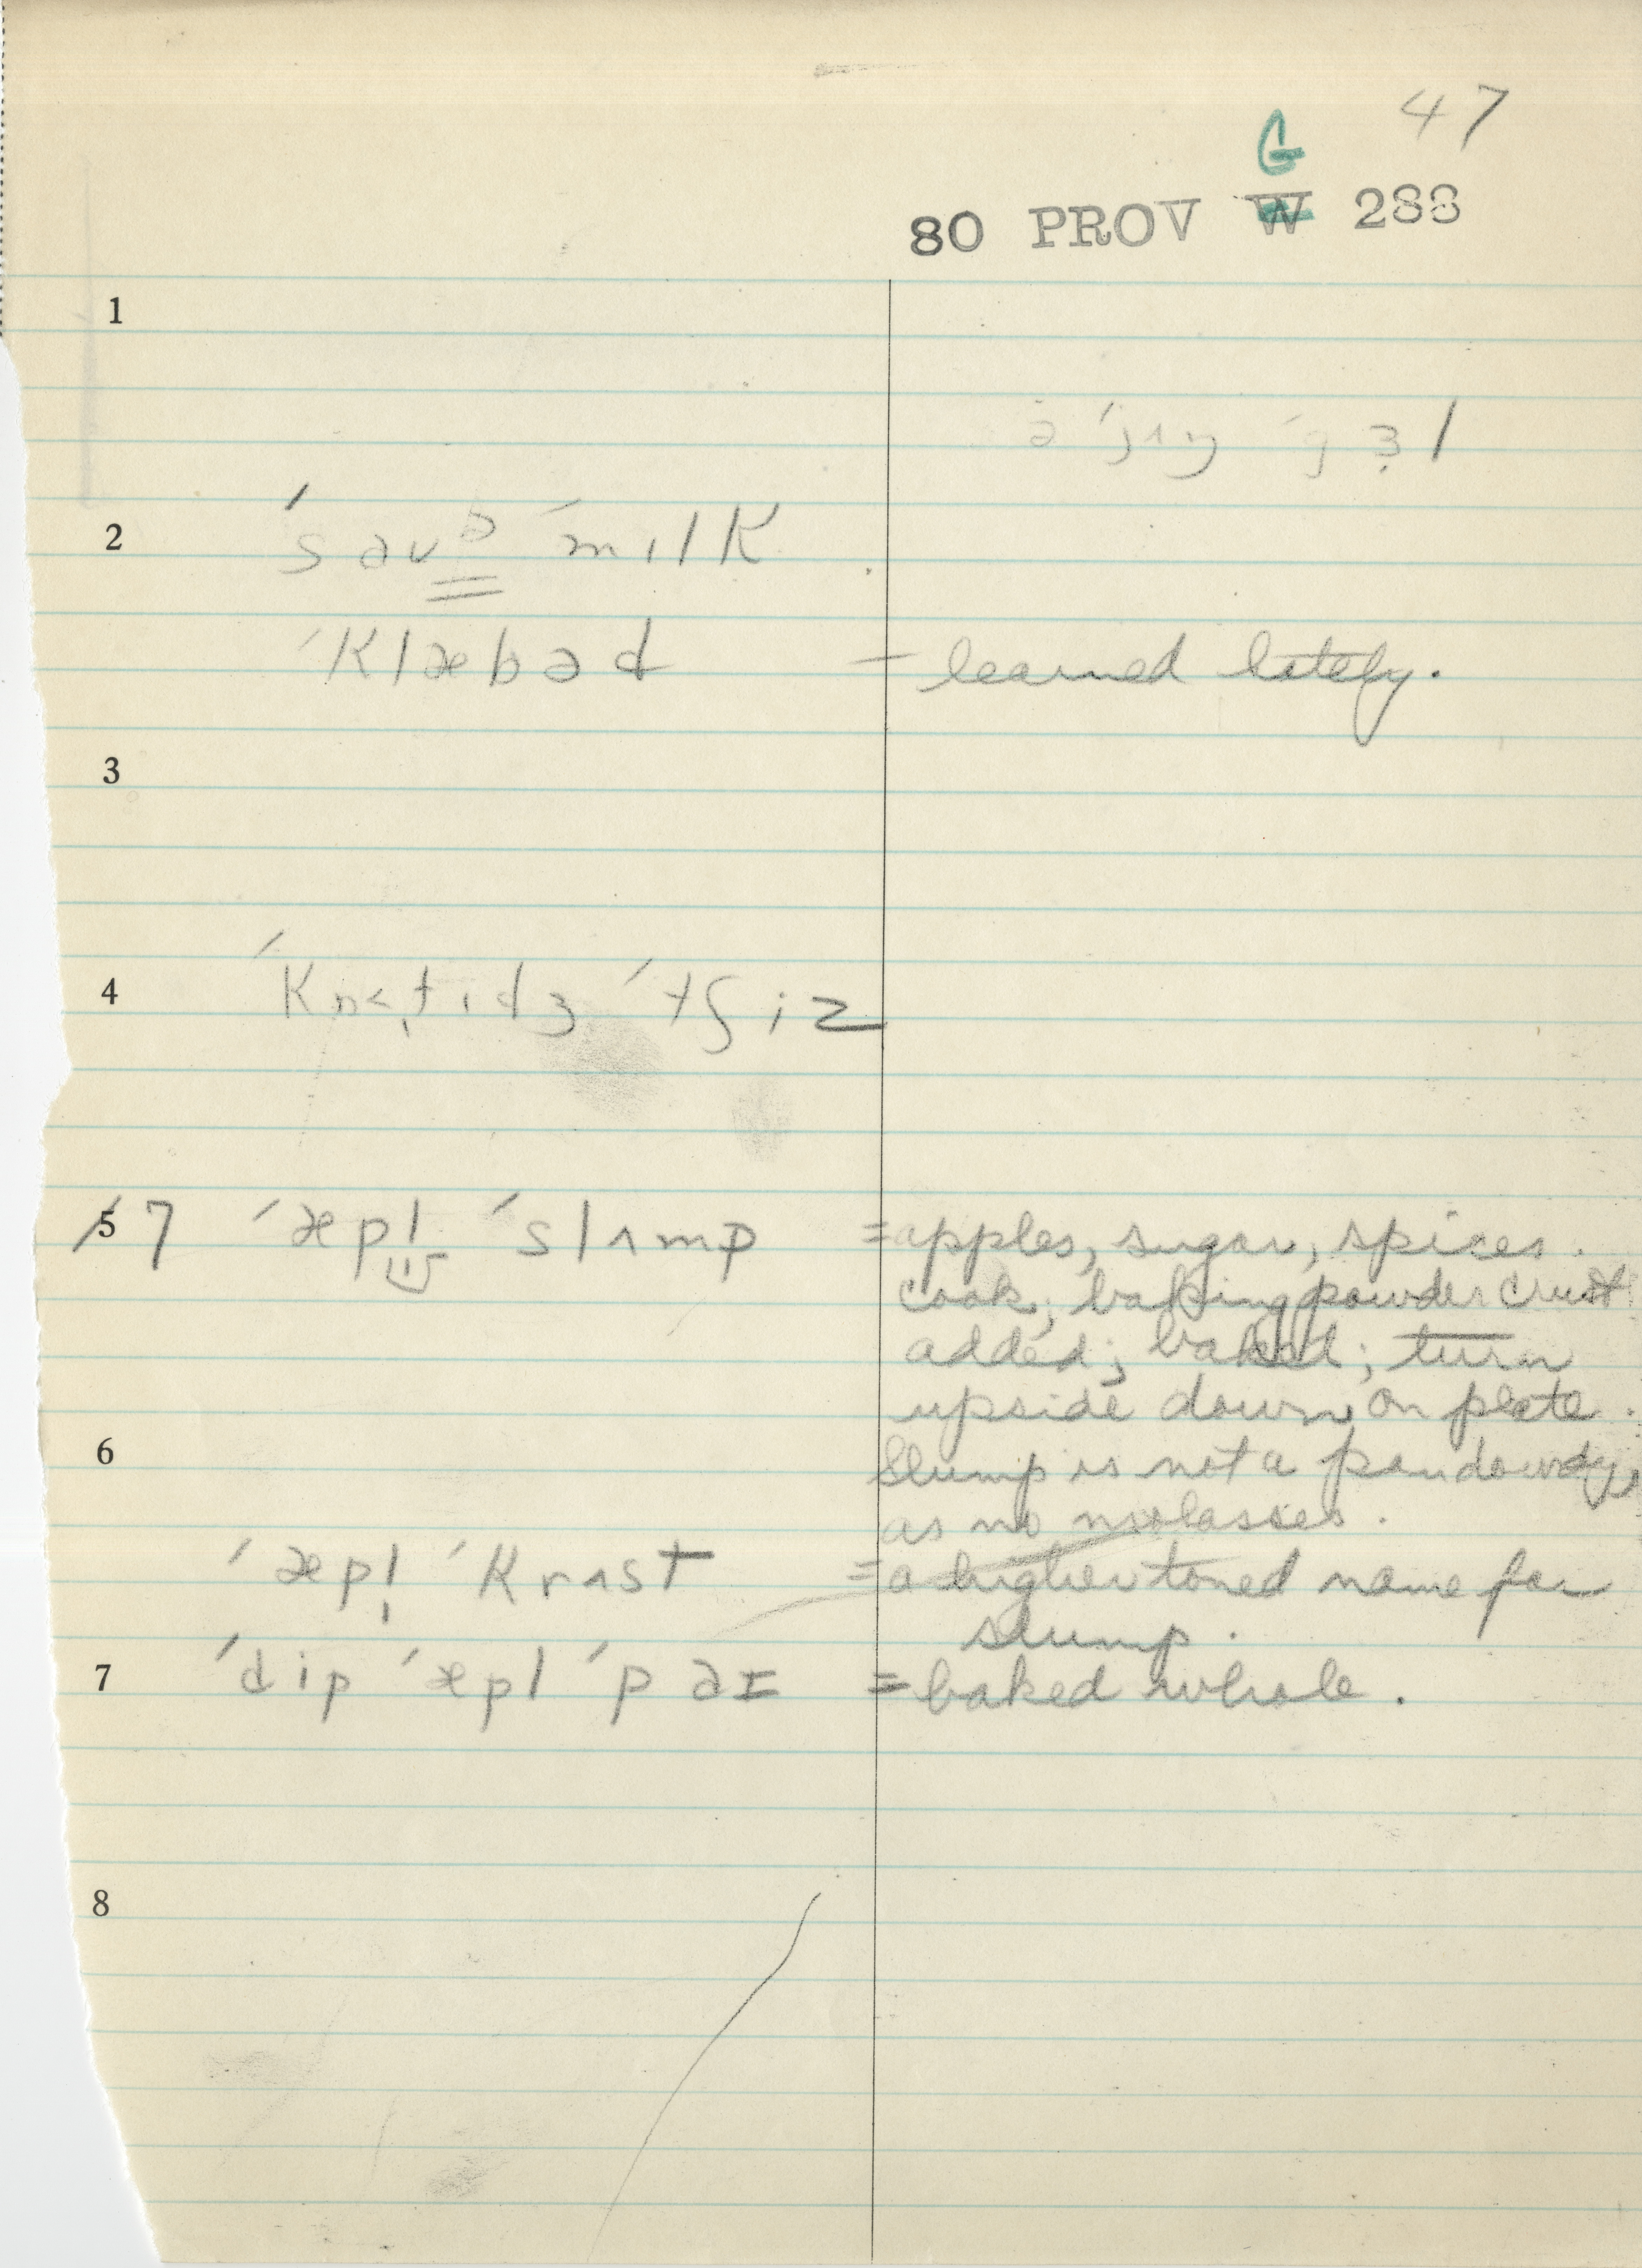 47
G
80 PROV W 288
1
ə ˈjʌŋ ˈgɜl
2 ˈsɑʊə ˈmɪlK
ˈKlæbəd – learned lately.
3
4 ˈKɒtɪdʒ ˈtʃiz
5 7 ˈæpl̩ ˈslʌmp = apples, sugar, spices.
cook; baking powder crust
added; baked; turn
upside down on plate.
6 Slump is not a pandowdy,
as no molasses.
ˈæpl̩ ˈKrʌst = a higher toned name for
slump.
7 ˈdip ˈæpl ˈpaɪ = baked whole.
8